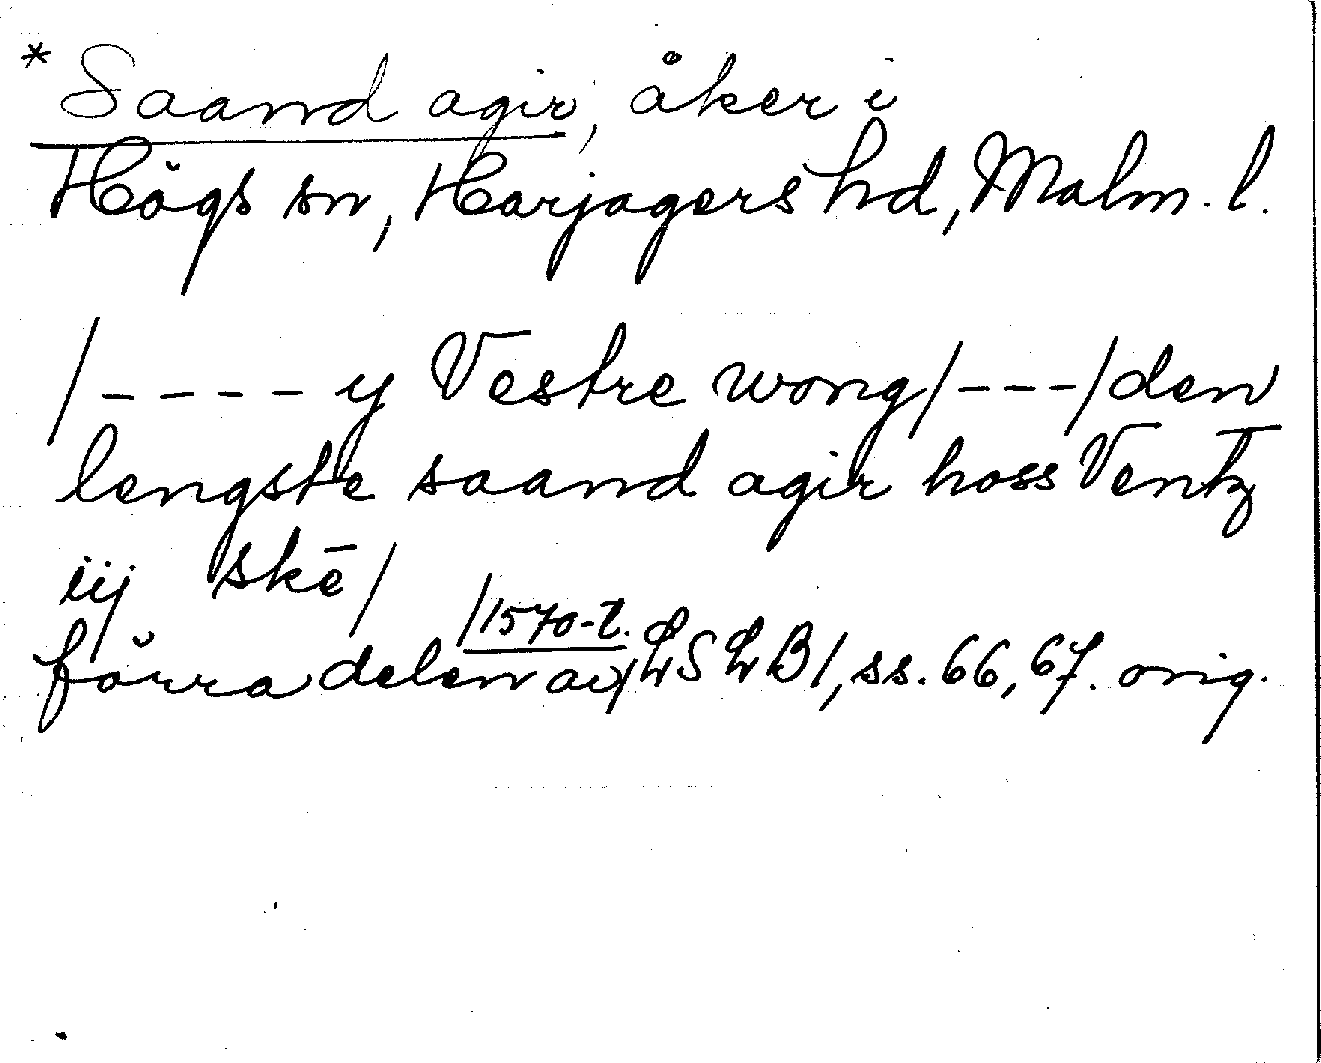 * Saand agir, åker i
Högs sn, Harjagers hd, Malm. l.
/---- y Vestre wong/---/den
lengste saand agir hoss Ventz
iij skē/
förra delen av /1570-t. LSLB1, ss. 66, 67. orig.